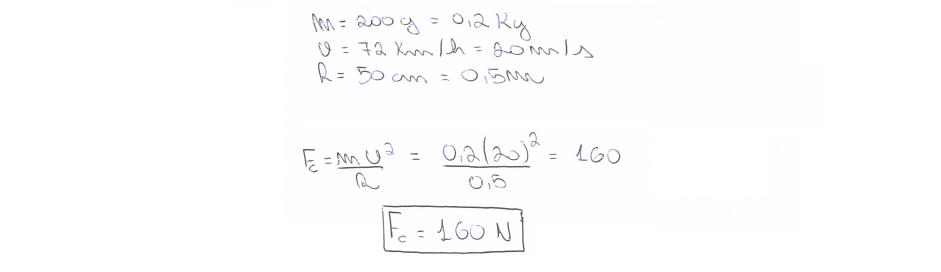 m = 200 g = 0,2 Kg
v = 72 Km/h = 20 m/s
R = 50 cm = 0,5 m
Fc = m v² / R = 0,2(20)² / 0,5 = 160
Fc = 160 N